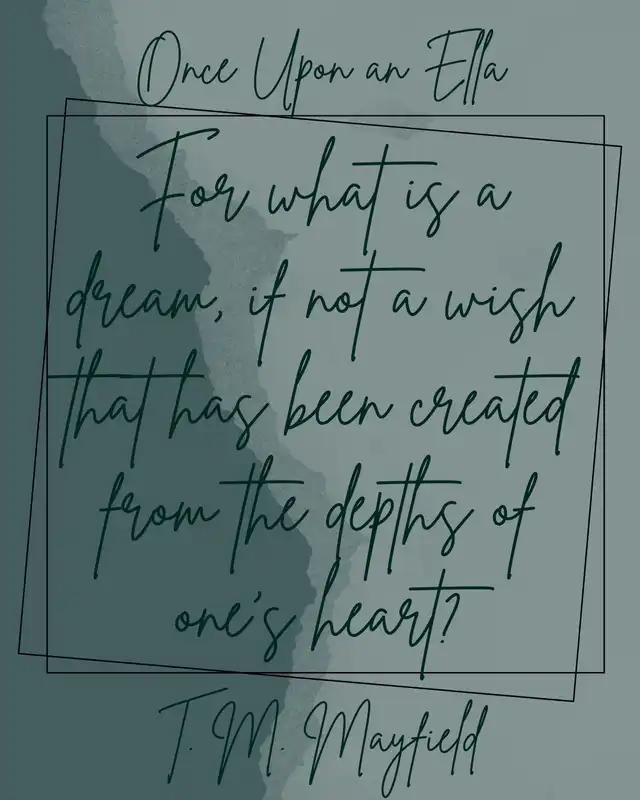 Once Upon an Ella
For what is a
dream, if not a wish
that has been created
from the depths of
one's heart?
T. M. Mayfield